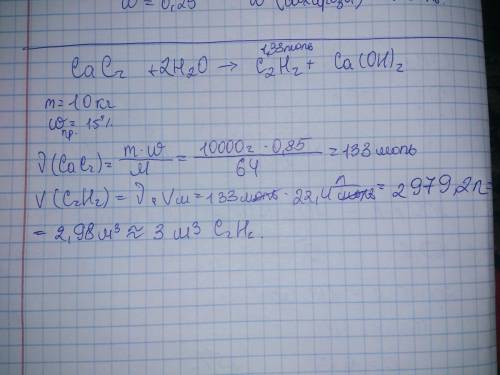 ω = 0,25 ω (сахарозы)
1,33моль
CaC₂ + 2H₂O → C₂H₂ + Ca(OH)₂
m = 10 кг
ω пр. = 15%
ν(CaC₂) = m·ω / M = 10000г · 0,85 / 64 = 133 моль
V(C₂H₂) = ν · Vм = 133 моль · 22,4 л/моль = 2979,2л =
= 2,98 м³ ≈ 3 м³ C₂H₂.